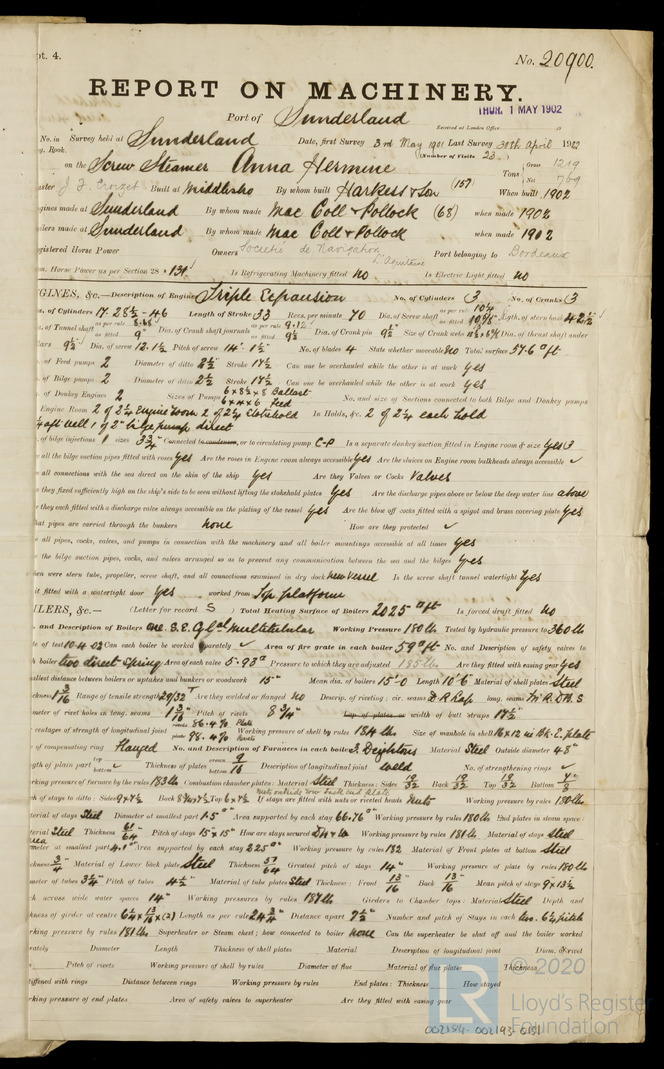 pt. 4.
No. 20900.
REPORT ON MACHINERY.
THUR. 1 MAY 1902
Port of Sunderland
Received at London Office
No. in Survey held at Sunderland Date, first Survey 3rd May 1901 Last Survey 30th April 1902
g. Book. (Number of Visits 23)
on the Screw Steamer Anna Hermine Tons Gross 1219 Net 769
aster J. F. Croizet Built at Middlesbro By whom built Harkess & Son (157) When built 1902
gines made at Sunderland By whom made Mac Coll & Pollock (68) when made 1902
ilers made at Sunderland By whom made Mac Coll & Pollock when made 1902
egistered Horse Power Owners Societié de Navigation L'Aquitaine Port belonging to Bordeaux
m. Horse Power as per Section 28 134 Is Refrigerating Machinery fitted no Is Electric Light fitted no
GINES, &c.—Description of Engines Triple Expansion No. of Cylinders 3 No. of Cranks 3
a. of Cylinders 17. 28½ - 46 Length of Stroke 33 Revs. per minute 70 Dia. of Screw shaft as per rule as fitted Lgth. of stern bush 42½"
. of Tunnel shaft as per rule 8.68 as fitted 9" Dia. of Crank shaft journals as per rule 9.12 as fitted 9½ Dia. of Crank pin 9½ Size of Crank webs Dia. of thrust shaft under
lars 9½ Dia. of screw 12.1½ Pitch of screw 14' 1½" No. of blades 4 State whether moveable no Total surface 57.6 □ft
. of Feed pumps 2 Diameter of ditto 2½ Stroke 17½ Can one be overhauled while the other is at work yes
. of Bilge pumps 2 Diameter of ditto 2½ Stroke 17½ Can one be overhauled while the other is at work yes
. of Donkey Engines 2 Sizes of Pumps 6 x 8½ x 8 Ballast 6 x 4 x 6 Feed No. and size of Suctions connected to both Bilge and Donkey pumps
Engine Room 2 of 2¼ Engine room 2 of 2¼ Stokehold In Holds, &c. 2 of 2¼ each hold
& aft well 1 of 2" bilge pump direct
. of bilge injections 1 sizes 3¾ Connected to condenser, or to circulating pump C-P Is a separate donkey suction fitted in Engine room & size yes 3
e all the bilge suction pipes fitted with roses yes Are the roses in Engine room always accessible yes Are the sluices on Engine room bulkheads always accessible ✓
e all connections with the sea direct on the skin of the ship yes Are they Valves or Cocks Valves
e they fixed sufficiently high on the ship's side to be seen without lifting the stokehold plates yes Are the discharge pipes above or below the deep water line above
e they each fitted with a discharge valve always accessible on the plating of the vessel yes Are the blow off cocks fitted with a spigot and brass covering plate yes
hat pipes are carried through the bunkers none How are they protected ✓
e all pipes, cocks, valves, and pumps in connection with the machinery and all boiler mountings accessible at all times yes
e the bilge suction pipes, cocks, and valves arranged so as to prevent any communication between the sea and the bilges yes
hen were stern tube, propeller, screw shaft, and all connections examined in dry dock new vessel Is the screw shaft tunnel watertight yes
it fitted with a watertight door yes worked from Top platform
ILERS, &c.— (Letter for record S ) Total Heating Surface of Boilers 2025 □ft Is forced draft fitted no
and Description of Boilers One. S.E. Cylal multitubular Working Pressure 180 lb Tested by hydraulic pressure to 360 lb
te of test 10.4.02 Can each boiler be worked separately ✓ Area of fire grate in each boiler 59 □ft No. and Description of safety valves to
h boiler two direct Spring Area of each valve 5.93□" Pressure to which they are adjusted 185 lb Are they fitted with easing gear yes
allest distance between boilers or uptakes and bunkers or woodwork 15" Mean dia. of boilers 15'-0 Length 10'6" Material of shell plates Steel
ckness 1 3/16 Range of tensile strength 29/32 T Are they welded or flanged no Descrip. of riveting: cir. seams D R Lap long. seams Tr. R. D.B. S
meter of rivet holes in long. seams 1 3/16 Pitch of rivets 8¾" Lap of plates or width of butt straps 17½"
centages of strength of longitudinal joint rivets 86.4% Plate plate 98.4% Rivets Working pressure of shell by rules 184 lb Size of manhole in shell 16 x 12 in Bk. E. plate
e of compensating ring Flanged No. and Description of Furnaces in each boiler 3. Deightons Material Steel Outside diameter 48"
gth of plain part top ✓ bottom Thickness of plates crown 9/16 bottom Description of longitudinal joint weld No. of strengthening rings ✓
rking pressure of furnace by the rules 183 lb Combustion chamber plates: Material Steel Thickness: Sides 19/32 Back 19/32 Top 19/32 Bottom 7/8
ch of stays to ditto: Sides 9 x 7½ Back Top 6 x 7½ If stays are fitted with nuts or riveted heads nuts Working pressure by rules 180 lb
terial of stays Steel Diameter at smallest part 1.5□" Area supported by each stay 66.76□" Working pressure by rules 180 lb End plates in steam space:
terial Steel Thickness 61/64 Pitch of stays 15" x 15" How are stays secured Working pressure by rules 181 lb Material of stays Steel
meter at smallest part 4.1□" Area supported by each stay 225□" Working pressure by rules 182 Material of Front plates at bottom Steel
ckness ¾ Material of Lower back plate Steel Thickness 57/64 Greatest pitch of stays 14" Working pressure of plate by rules 180 lb
meter of tubes 3¼" Pitch of tubes 4½" Material of tube plates Steel Thickness: Front 13/16 Back 13/16 Mean pitch of stays 9 x 13½
ch across wide water spaces 14" Working pressures by rules 187 lb Girders to Chamber tops: Material Steel Depth and
ckness of girder at centre 6¼ x 13/16 x (2) Length as per rule 24¾" Distance apart 7½" Number and pitch of Stays in each two. 6¼ pitch
rking pressure by rules 181 lb Superheater or Steam chest; how connected to boiler none Can the superheater be shut off and the boiler worked
rately Diameter Length Thickness of shell plates Material Description of longitudinal joint Diam. of rivet
Pitch of rivets Working pressure of shell by rules Diameter of flue Material of flue plates Thickness
tiffened with rings Distance between rings Working pressure by rules End plates: Thickness How stayed
rking pressure of end plates Area of safety valves to superheater Are they fitted with easing gear
LR © 2020
Lloyd's Register
Foundation
002184-002193-0151